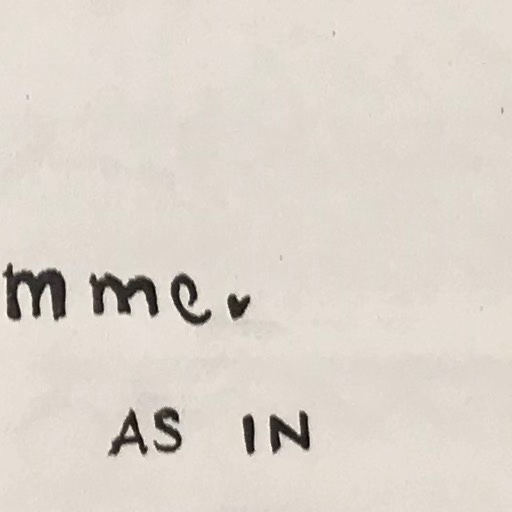 mme.
AS IN